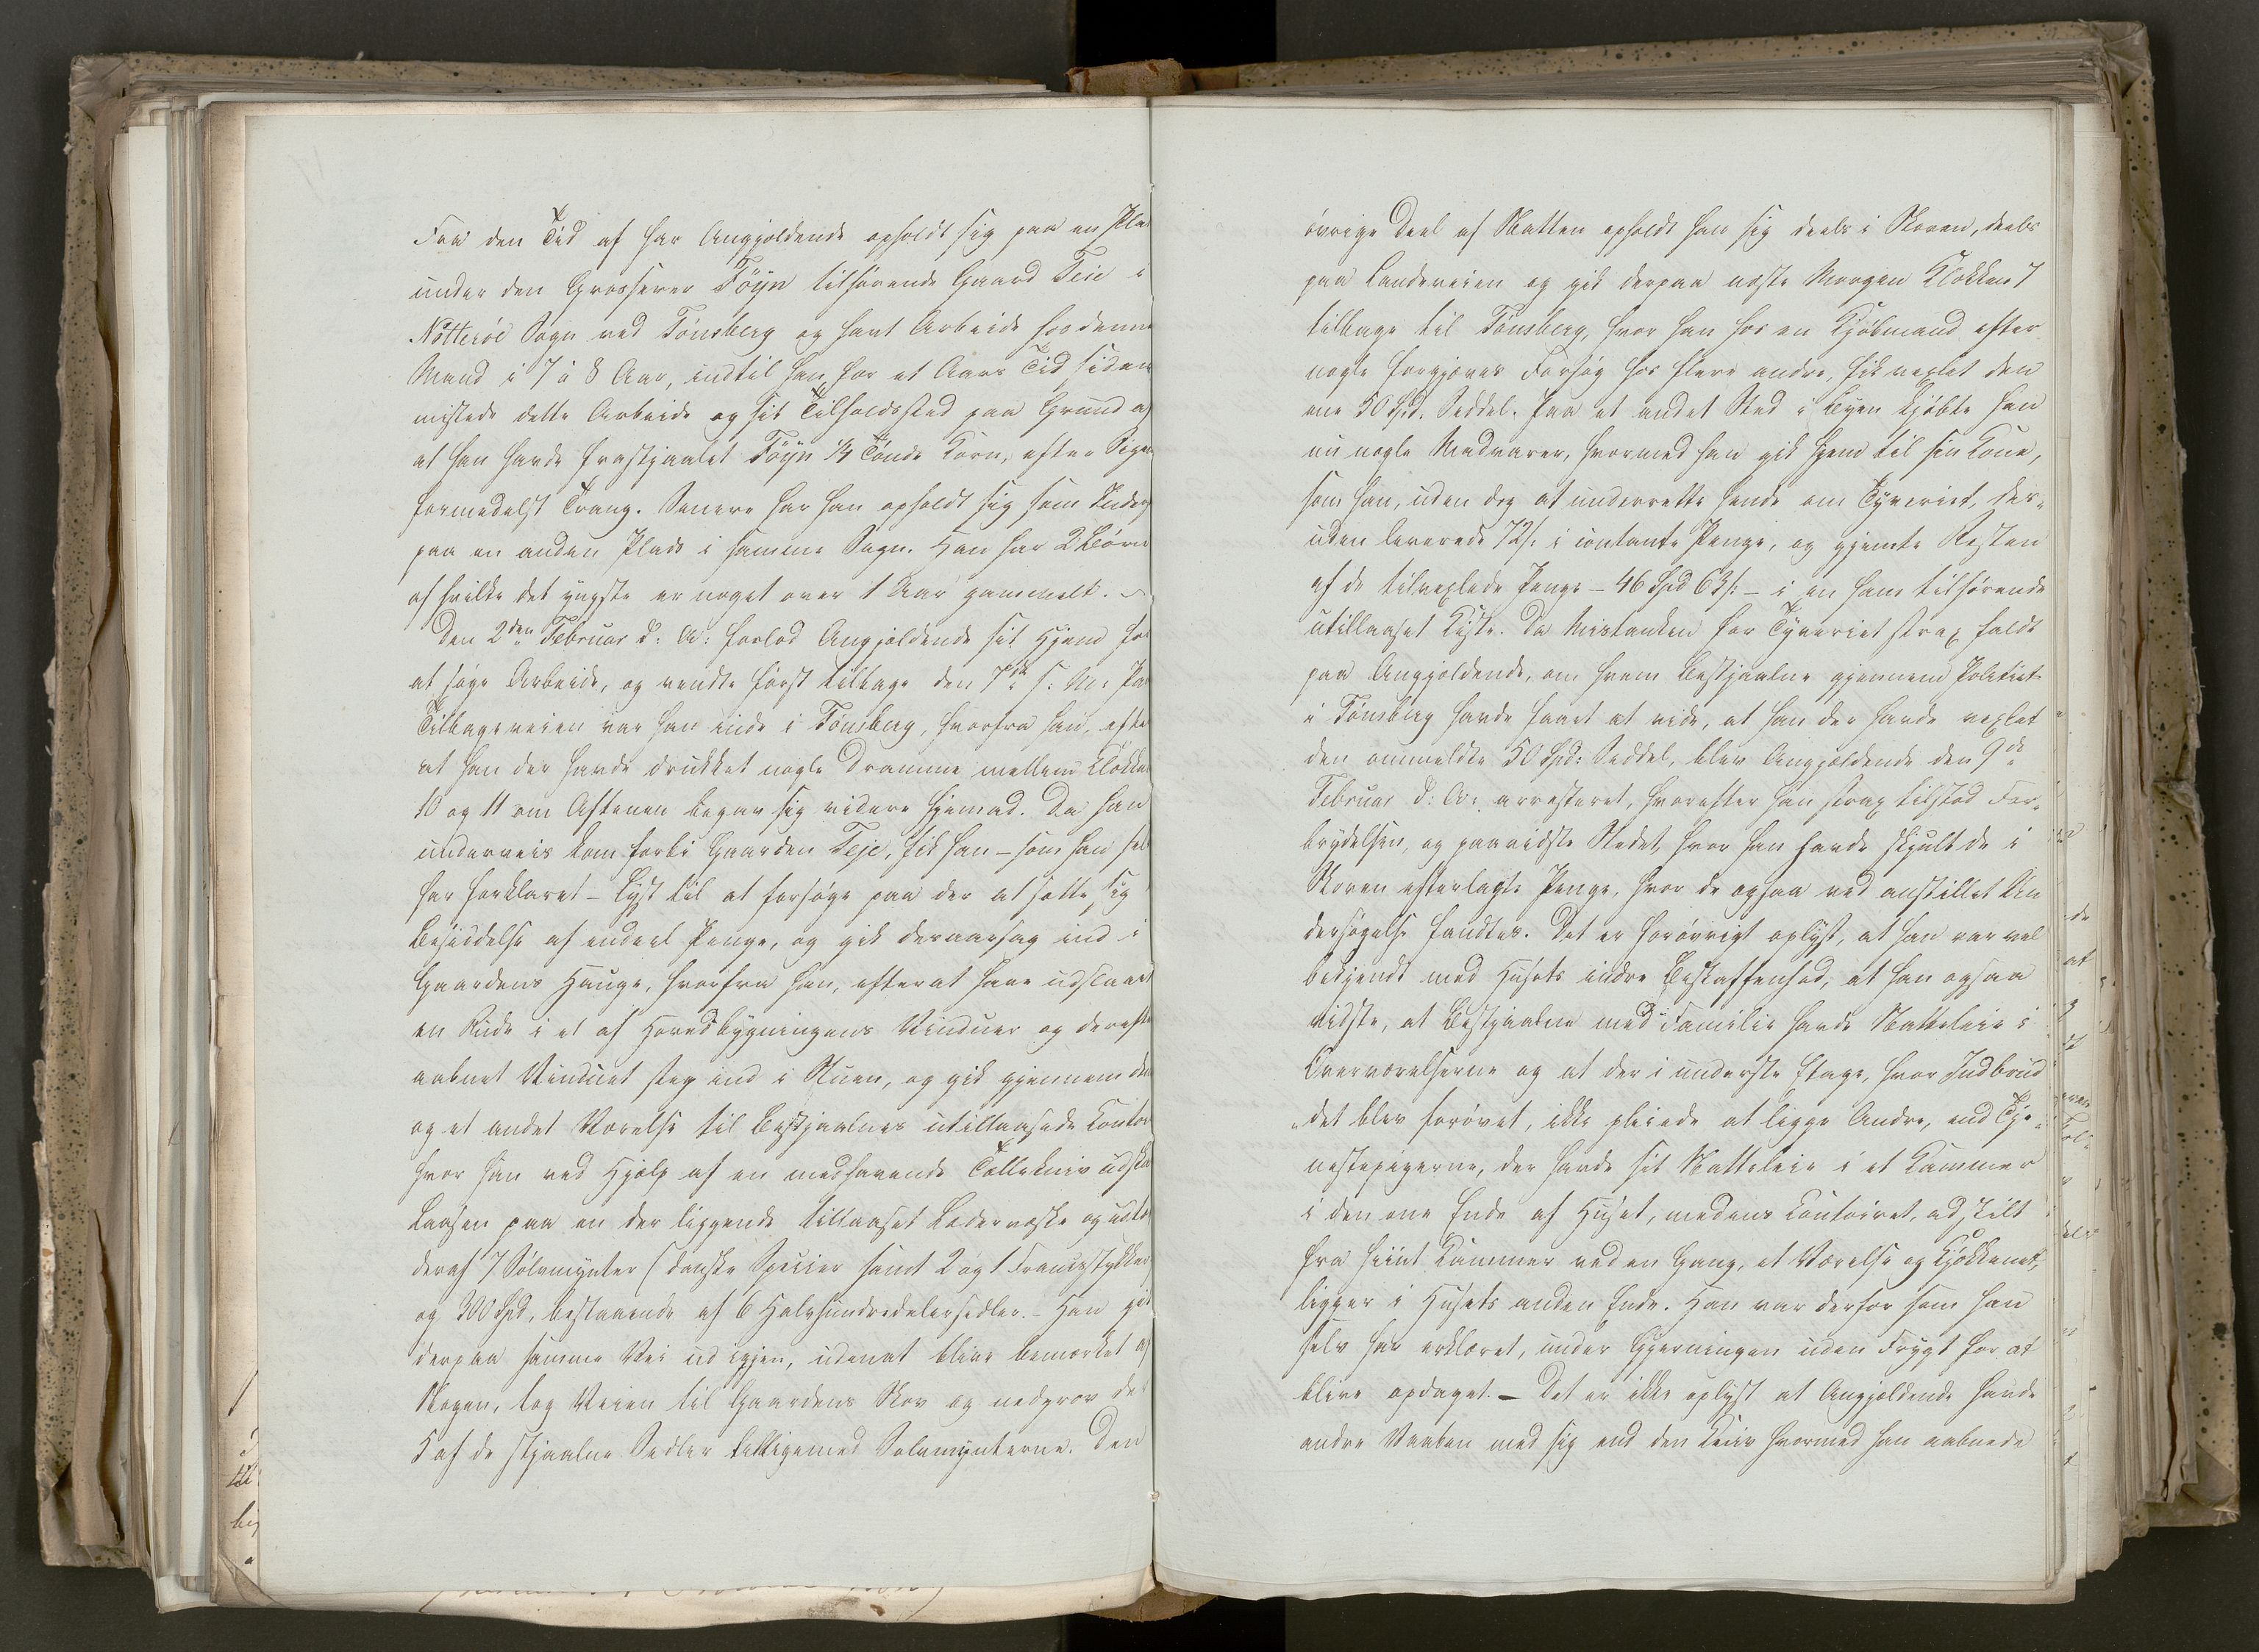 Fra den Tid af har Angjeldende opholdt sig paa en Plad
under den Grosserer Föyn tilhørende Gaard Teie i
Nötteröe Sogn ved Tönsberg og havt Arbeide hos denne
Mand i 7 à 8 Aar, indtil han for et Aars Tid siden
mistede dette Arbeide og sit Tilholdssted paa Grund af
at han havde frastjaalet Föyn 1/4 Tönde Korn, efter Sigen
formedelst Trang. Senere har han opholdt sig som Inders
paa en anden Plads i samme Sogn. Han har 2 Börn
af hvilke det yngste er noget over 1 Aar gammelt. –
Den 2den Februar d: A: forlod Angjeldende sit Hjem for
at söge Arbeide, og vendte först tilbage den 7de s: M: Paa
Tilbageveien var han inde i Tönsberg, hvorfra han, efter
at han der havde drukket nogle Dramme mellem Klokken
10 og 11 om Aftenen begav sig videre hjemad. Da han
underveis kom forbi Gaarden Teje, fik han – som han selv
har forklaret – Lyst til at forsöge paa der at sætte sig i
Besiddelse af endeel Penge, og gik desaarsag ind i
Gaardens Hauge, hvorfra han, efterat have udslaaet
en Rude i et af Hovedbygningens Vinduer og derefter
aabnet Vinduet steg ind i Stuen, og gik gjennem den
og et andet Værelse til Bestjaalnes utillaasede Contoir
hvor han ved Hjelp af en medhavende Tollekniv udskar
Laasen paa en der liggende tillaaset Lædervæske og udtog
deraf 7 Sölvmynter (danske Specier samt 2 og 1 Francstykker)
og 300 Spd, bestaaende af 6 Halvhundredalersedler. – Han gik
derpaa samme Vei ud igjen, udenat blive bemærket af
Nogen, tog Veien til Gaardens Skov og nedgrov der
5 af de stjaalne Sedler tilligemed Sölvmynterne. Den
övrige Deel af Natten opholdt han sig deels i Skoven, deels
paa Landeveien og gik derpaa næste Morgen Klokken 7
tilbage til Tönsberg, hvor han hos en Kjöbmand efter
nogle forgjæves Forsög hos flere andre, fik vexlet den
ene 50 Spd. Seddel. Paa et andet Sted i Byen kjöbte han
nu nogle Madvarer, hvormed han gik hjem til sin Kone,
som han, uden dog at underrette hende om Tyveriet, des-
uden leverede 72 s: i contante Penge, og gjemte Resten
af de tilvexlede Penge – 46 Spd 63 s: – i en ham tilhørende
utillaaset Kiste. Da Mistanken for Tyveriet strax faldt
paa Angjeldende, om hvem Bestjaalne gjennem Politiet
i Tönsberg havde faaet at vide, at han der havde vexlet
den ommeldte 50 Spd: Seddel, blev Angjeldende den 9de
Februar d: A: arresteret, hvorefter han strax tilstod For-
brydelsen, og paaviste Stedet, hvor han havde skjult de i
Skoven efterlagte Penge, hvor de ogsaa ved anstillet Un
dersögelse fandtes. Det er forövrigt oplyst, at han var vel
bekjendt med Husets indre Beskaffenhed, at han ogsaa
vidste, at Bestjaalne med Familie havde Natteleie i
Oververelserne og at der i underste Etage, hvor Indbrud
„det blev forövet, ikke pleiede at ligge Andre, end Tje-
nestepigerne, der havde sit Natteleie i et Kammer
i den ene Ende af Huset, medens Contoiret, adskilt
fra hiint Kammer ved en Gang, et Værelse og Kjökkenet,
ligger i Husets anden Ende. Han var derfor som han
selv har erklæret, under Gjerningen uden Frygt for at
blive opdaget. – Det er ikke oplyst at Angjeldende havde
andre Vaaben med sig end den Kniv hvormed han aabnede